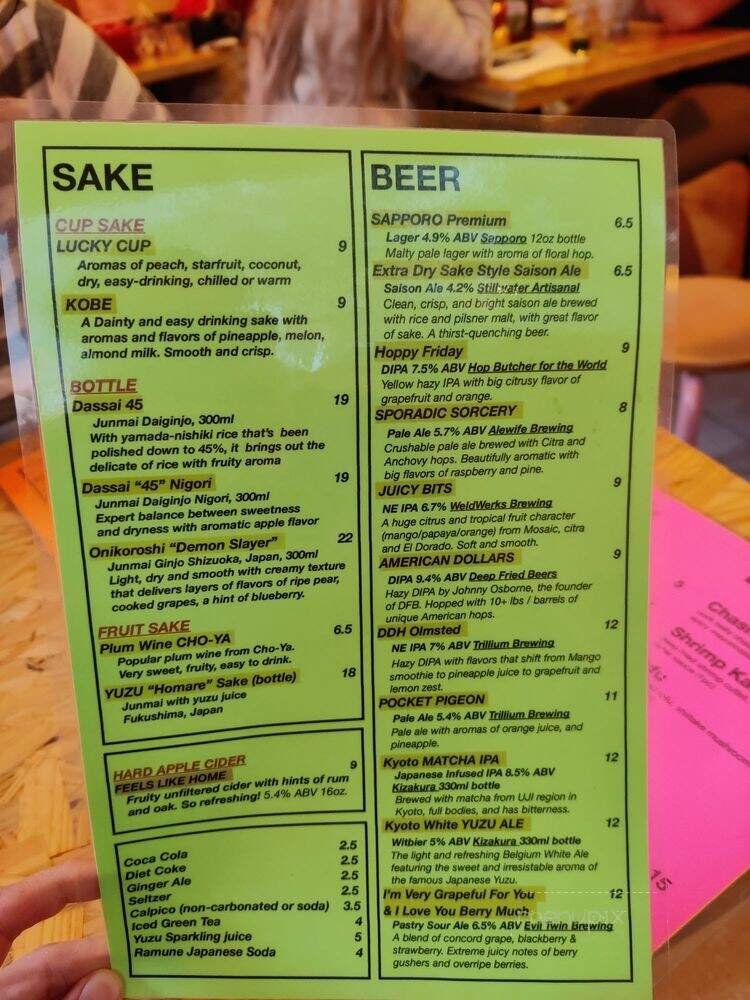 SAKE
CUP SAKE
LUCKY CUP 9
Aromas of peach, starfruit, coconut,
dry, easy-drinking, chilled or warm
KOBE 9
A Dainty and easy drinking sake with
aromas and flavors of pineapple, melon,
almond milk. Smooth and crisp.
BOTTLE
Dassai 45 19
Junmai Daiginjo, 300ml
With yamada-nishiki rice that's been
polished down to 45%, it brings out the
delicate of rice with fruity aroma
Dassai "45" Nigori 19
Junmai Daiginjo Nigori, 300ml
Expert balance between sweetness
and dryness with aromatic apple flavor
Onikoroshi "Demon Slayer" 22
Junmai Ginjo Shizuoka, Japan, 300ml
Light, dry and smooth with creamy texture
that delivers layers of flavors of ripe pear,
cooked grapes, a hint of blueberry.
FRUIT SAKE
Plum Wine CHO-YA 6.5
Popular plum wine from Cho-Ya.
Very sweet, fruity, easy to drink.
YUZU "Homare" Sake (bottle) 18
Junmai with yuzu juice
Fukushima, Japan
HARD APPLE CIDER
FEELS LIKE HOME 9
Fruity unfiltered cider with hints of rum
and oak. So refreshing! 5.4% ABV 16oz.
Coca Cola 2.5
Diet Coke 2.5
Ginger Ale 2.5
Seltzer 2.5
Calpico (non-carbonated or soda) 3.5
Iced Green Tea 4
Yuzu Sparkling juice 5
Ramune Japanese Soda 4
BEER
SAPPORO Premium 6.5
Lager 4.9% ABV Sapporo 12oz bottle
Malty pale lager with aroma of floral hop.
Extra Dry Sake Style Saison Ale 6.5
Saison Ale 4.2% Stillwater Artisanal
Clean, crisp, and bright saison ale brewed
with rice and pilsner malt, with great flavor
of sake. A thirst-quenching beer.
Hoppy Friday 9
DIPA 7.5% ABV Hop Butcher for the World
Yellow hazy IPA with big citrusy flavor of
grapefruit and orange.
SPORADIC SORCERY 8
Pale Ale 5.7% ABV Alewife Brewing
Crushable pale ale brewed with Citra and
Anchovy hops. Beautifully aromatic with
big flavors of raspberry and pine.
JUICY BITS 9
NE IPA 6.7% WeldWerks Brewing
A huge citrus and tropical fruit character
(mango/papaya/orange) from Mosaic, citra
and El Dorado. Soft and smooth.
AMERICAN DOLLARS 9
DIPA 9.4% ABV Deep Fried Beers
Hazy DIPA by Johnny Osborne, the founder
of DFB. Hopped with 10+ lbs / barrels of
unique American hops.
DDH Olmsted 12
NE IPA 7% ABV Trillium Brewing
Hazy DIPA with flavors that shift from Mango
smoothie to pineapple juice to grapefruit and
lemon zest.
POCKET PIGEON 11
Pale Ale 5.4% ABV Trillium Brewing
Pale ale with aromas of orange juice, and
pineapple.
Kyoto MATCHA IPA 12
Japanese Infused IPA 8.5% ABV
Kizakura 330ml bottle
Brewed with matcha from UJI region in
Kyoto, full bodies, and has bitterness.
Kyoto White YUZU ALE 12
Witbier 5% ABV Kizakura 330ml bottle
The light and refreshing Belgium White Ale
featuring the sweet and irresistable aroma of
the famous Japanese Yuzu.
I'm Very Grapeful For You 12
& I Love You Berry Much
Pastry Sour Ale 6.5% ABV Evil Twin Brewing
A blend of concord grape, blackberry &
strawberry. Extreme juicy notes of berry
gushers and overripe berries.
5
Shrimp
15